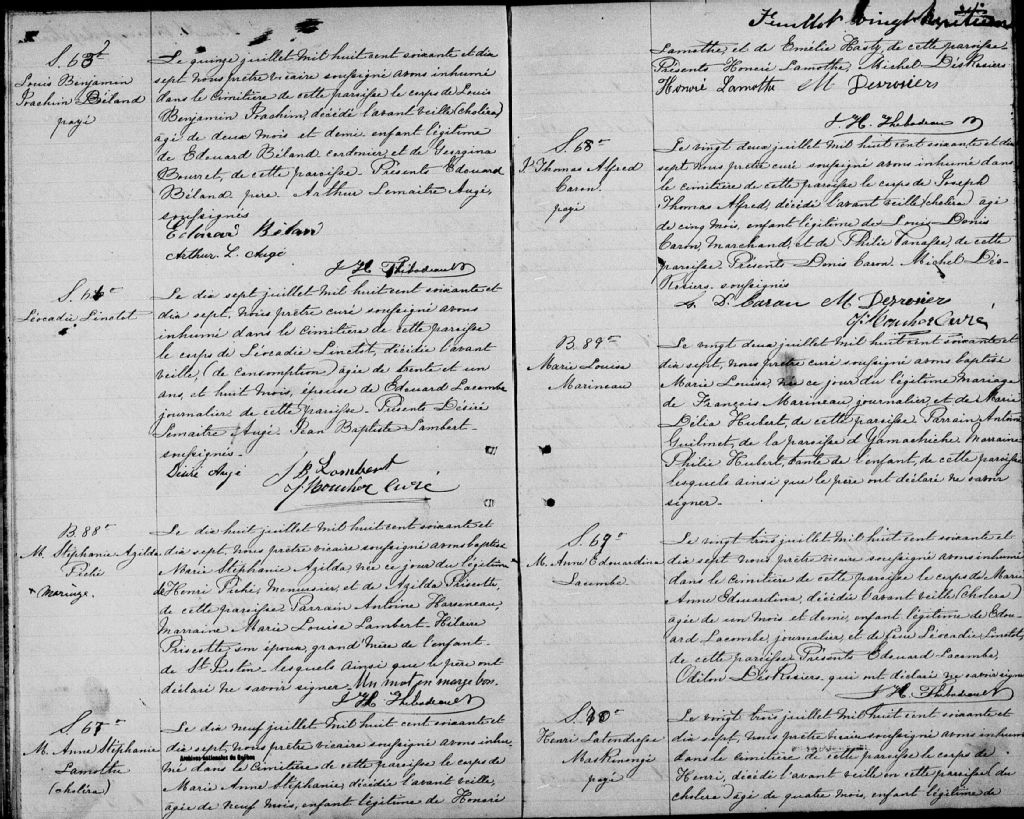 S. 65e
Louis Benjamin
Joachim Béland
payé
Le quinze juillet mil huit cent soixante et dix
sept nous prêtre vicaire soussigné avons inhumé
dans le cimetière de cette paroisse le corps de Louis
Benjamin Joachim, décédé l'avant veille (choléra)
âgé de deux mois et demi enfant légitime
de Edouard Béland cordonnier et de Georgina
Bourret, de cette paroisse. Présents Edouard
Béland père Arthur Lemaitre Augé,
soussignés
Edouard Bélan
Arthur. L. Augé
J H Thibodeau
S. 66e
Léocadie Linctot
Le dix sept juillet mil huit cent soixante et
dix sept, nous prêtre curé soussigné avons
inhumé dans le cimetière de cette paroisse
le corps de Léocadie Linctot, décédée l'avant
veille, (de consomption) agée de trente et un
ans, et huit mois, épouse de Edouard Lacombe
journalier de cette paroisse. Présents Désiré
Lemaitre Augé, Jean Baptiste Lambert
soussignés
Désiré Augé
B Lambert
J. Boucher Curé
B. 88e
M. Stéphanie Azilda
Piché
+ Mariage.
Le dix huit juillet mil huit cent soixante et
dix sept, nous prêtre vicaire soussigné avons baptisé
Marie Stéphanie Azilda née ce jour du légitime
de Henri Piché, menuisier, et de Azilda Friscotte,
de cette paroisse Parrain Antoine
Marraine Marie Louise Lambert Hilaire
Friscotte, son époux, grand'mère de l'enfant
de St Justin lesquels ainsi que le père ont
déclaré ne savoir signer. Un mot en marge bon.
J H Thibodeau
S. 67e
M. Anne Stéphanie
Lamothe
(choléra)
Le dix neuf juillet mil huit cent soixante et
dix sept, nous prêtre vicaire soussigné avons inhu-
Archives nationales du Québec
mé dans le cimetière de cette paroisse le corps de
Marie Anne Stéphanie, décédée l'avant veille,
agée de neuf mois, enfant légitime de Honoré
Feuillet vingt huitième
Lamothe, et de Emélie Hasty, de cette paroisse.
Présents Honoré Lamothe, Michel DesRosiers
Honoré Lamothe M Desrosiers
J. H. Thibodeau
S. 68e
J. Thomas Alfred
Caron.
payé
Le vingt deux juillet mil huit cent soixante et dix
sept nous prêtre curé soussigné avons inhumé dans
le cimetière de cette paroisse le corps de Joseph
Thomas Alfred, décédé l'avant veille (choléra) agé
de cinq mois, enfant légitime de Louis Denis
Caron, Marchand, et de Philie Vanasse, de cette
paroisse. Présents Denis Caron, Michel Des-
Rosiers soussignés
L. D. Caron M. Desrosiers
J. Boucher Curé
B. 89e
Marie Louise
Marineau
Le vingt deux juillet mil huit cent soixante et
dix sept, nous prêtre curé soussigné avons baptisé
Marie Louise, née ce jour du légitime mariage
de François Marineau, journalier, et de Marie
Délia Hubert, de cette paroisse. Parrain, Antoine
Guilmet, de la paroisse d'Yamachiche Marraine
Philie Hubert, tante de l'enfant, de cette paroisse
lesquels ainsi que le père ont déclaré ne savoir
signer.
S. 69e
M. Anne Edouardina
Lacombe.
Le vingt trois juillet mil huit cent soixante et
dix sept nous prêtre vicaire soussigné avons inhumé
dans le cimetière de cette paroisse le corps de Marie
Anne Edouardina, décédée l'avant veille (choléra)
agée de un mois et demi, enfant légitime de Edou-
ard Lacombe, journalier, et de feue Léocadie Linctot,
de cette paroisse. Présents Edouard Lacombe,
Odilon DesRosiers, qui ont déclaré ne savoir signer
J H. Thibodeau
S. 70e
Henri Latendresse
Maskinongé
payé
Le vingt trois juillet mil huit cent soixante et
dix sept, nous prêtre vicaire soussigné avons inhumé
dans le cimetière de cette paroisse le corps de
Henri, décédé l'avant veille en cette paroisse (du
choléra) agé de quatre mois, enfant légitime de